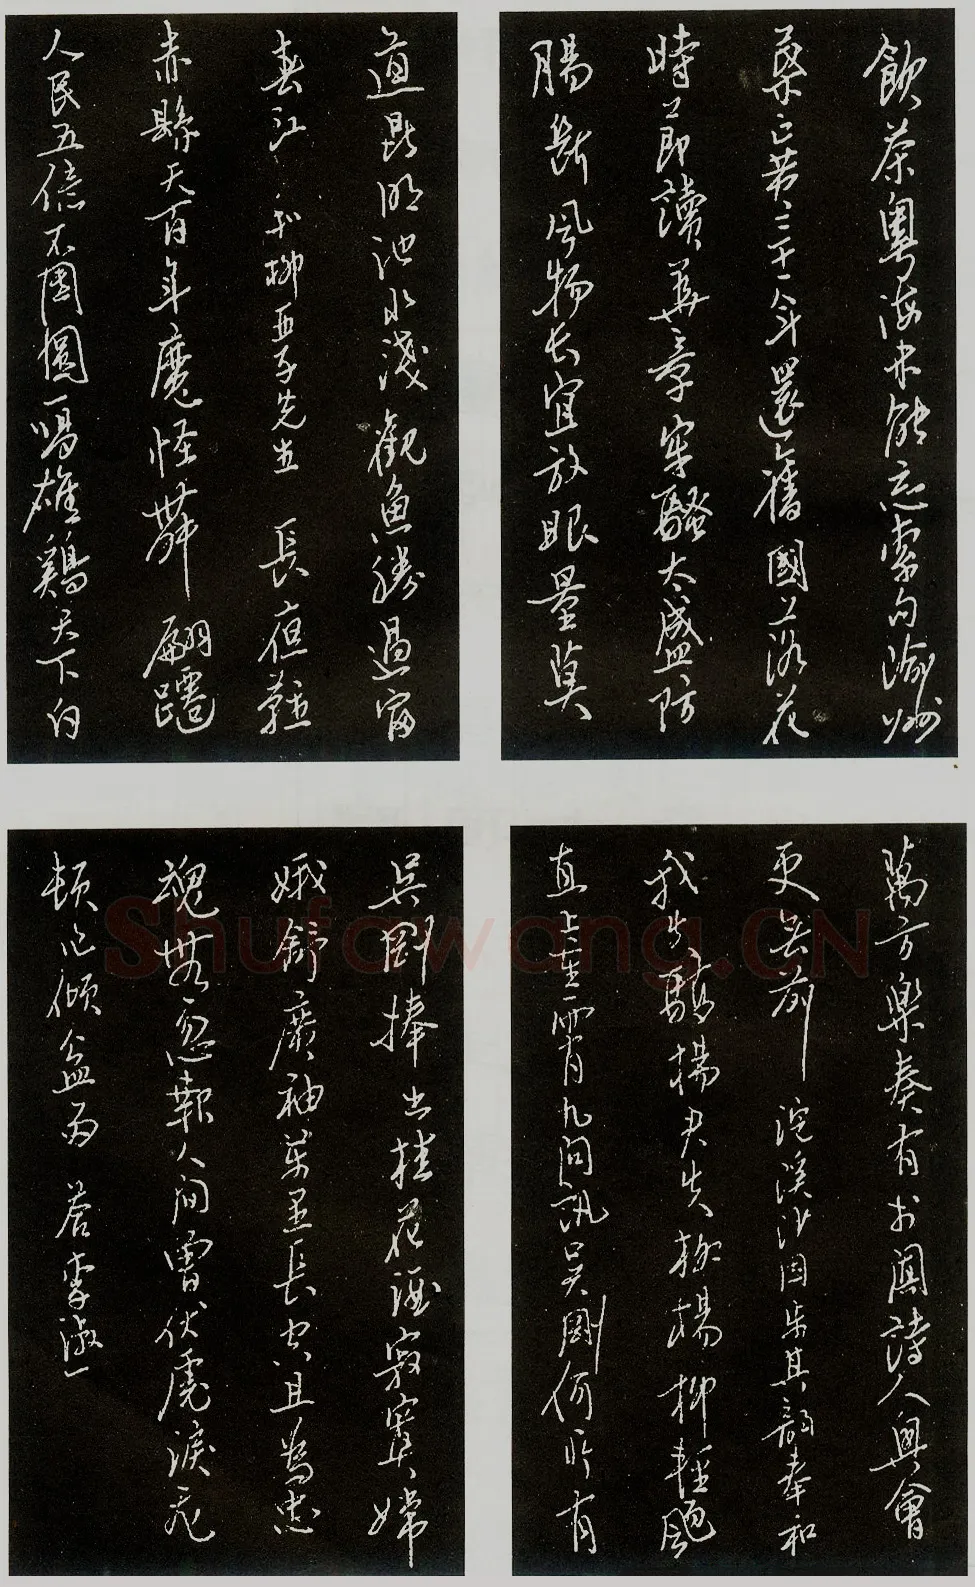 飲茶粵海未能忘索句渝州
葉正黃三十一年還舊國落花
時節讀華章牢騷太盛防
腸斷風物長宜放眼量莫
道昆明池水淺觀魚勝過富
春江 和柳亞子先生 長夜難
赤縣天百年魔怪舞翩躚
人民五億不團圓一唱雄雞天下白
萬方樂奏有于闐詩人興會
更無前 浣溪沙因步其韻奉和
我失驕楊君失柳楊柳輕颺
直上重霄九問訊吳剛何所有
吳剛捧出桂花酒寂寞嫦
娥舒廣袖萬里長空且為忠
魂舞忽報人間曾伏虎淚飛
頓作傾盆雨 答李淑一
Shufawang.CN